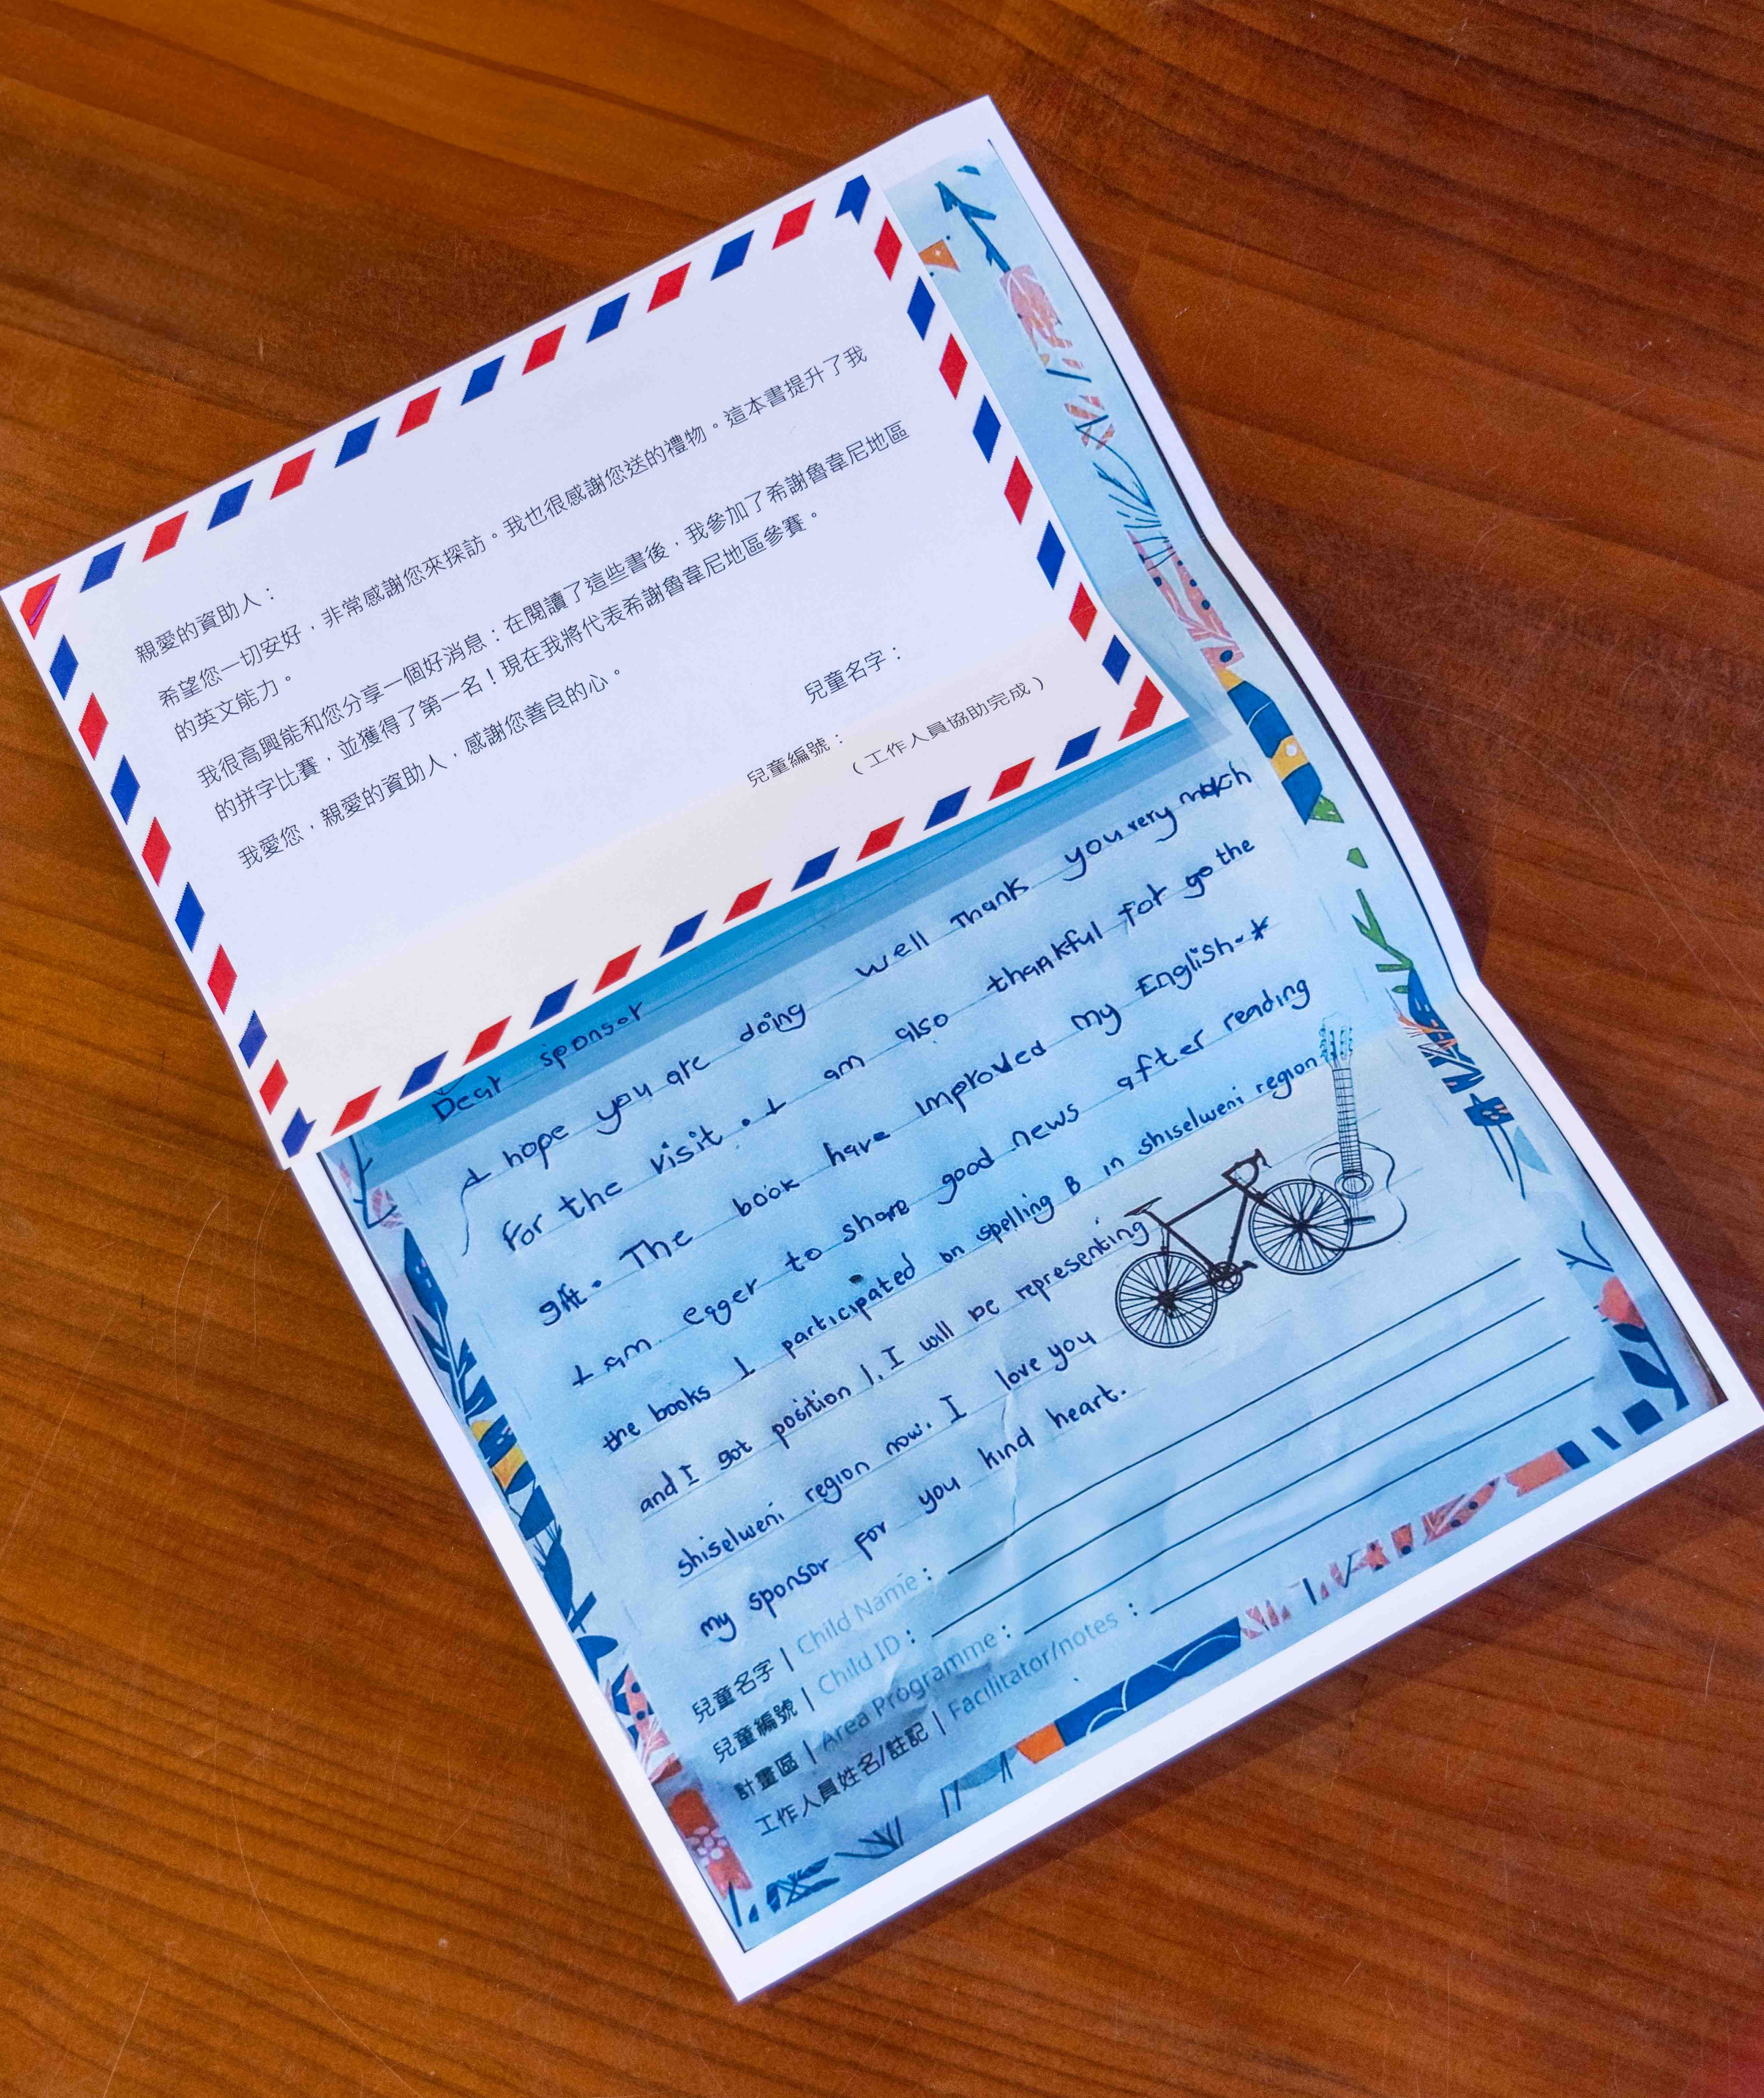 親愛的資助人：
希望您一切安好，非常感謝您來探訪。我也很感謝您送的禮物。這本書提升了我
的英文能力。
我很高興能和您分享一個好消息：在閱讀了這些書後，我參加了希謝魯韋尼地區
的拼字比賽，並獲得了第一名！現在我將代表希謝魯韋尼地區參賽。
我愛您，親愛的資助人，感謝您善良的心。
兒童名字：
兒童編號：
（工作人員協助完成）
Dear sponsor
I hope you are doing well Thank you very much
for the visit. I am also thankful for go the
gift. The book have improved my English.*
I am egger to share good news after reading
the books I participated on spelling B in shiselweni region
and I got position 1. I will be representing
shiselweni region now. I love you
my sponsor for you kind heart.
兒童名字 | Child Name：
兒童編號 | Child ID：
計畫區 | Area Programme：
工作人員姓名/註記 | Facilitator/notes：